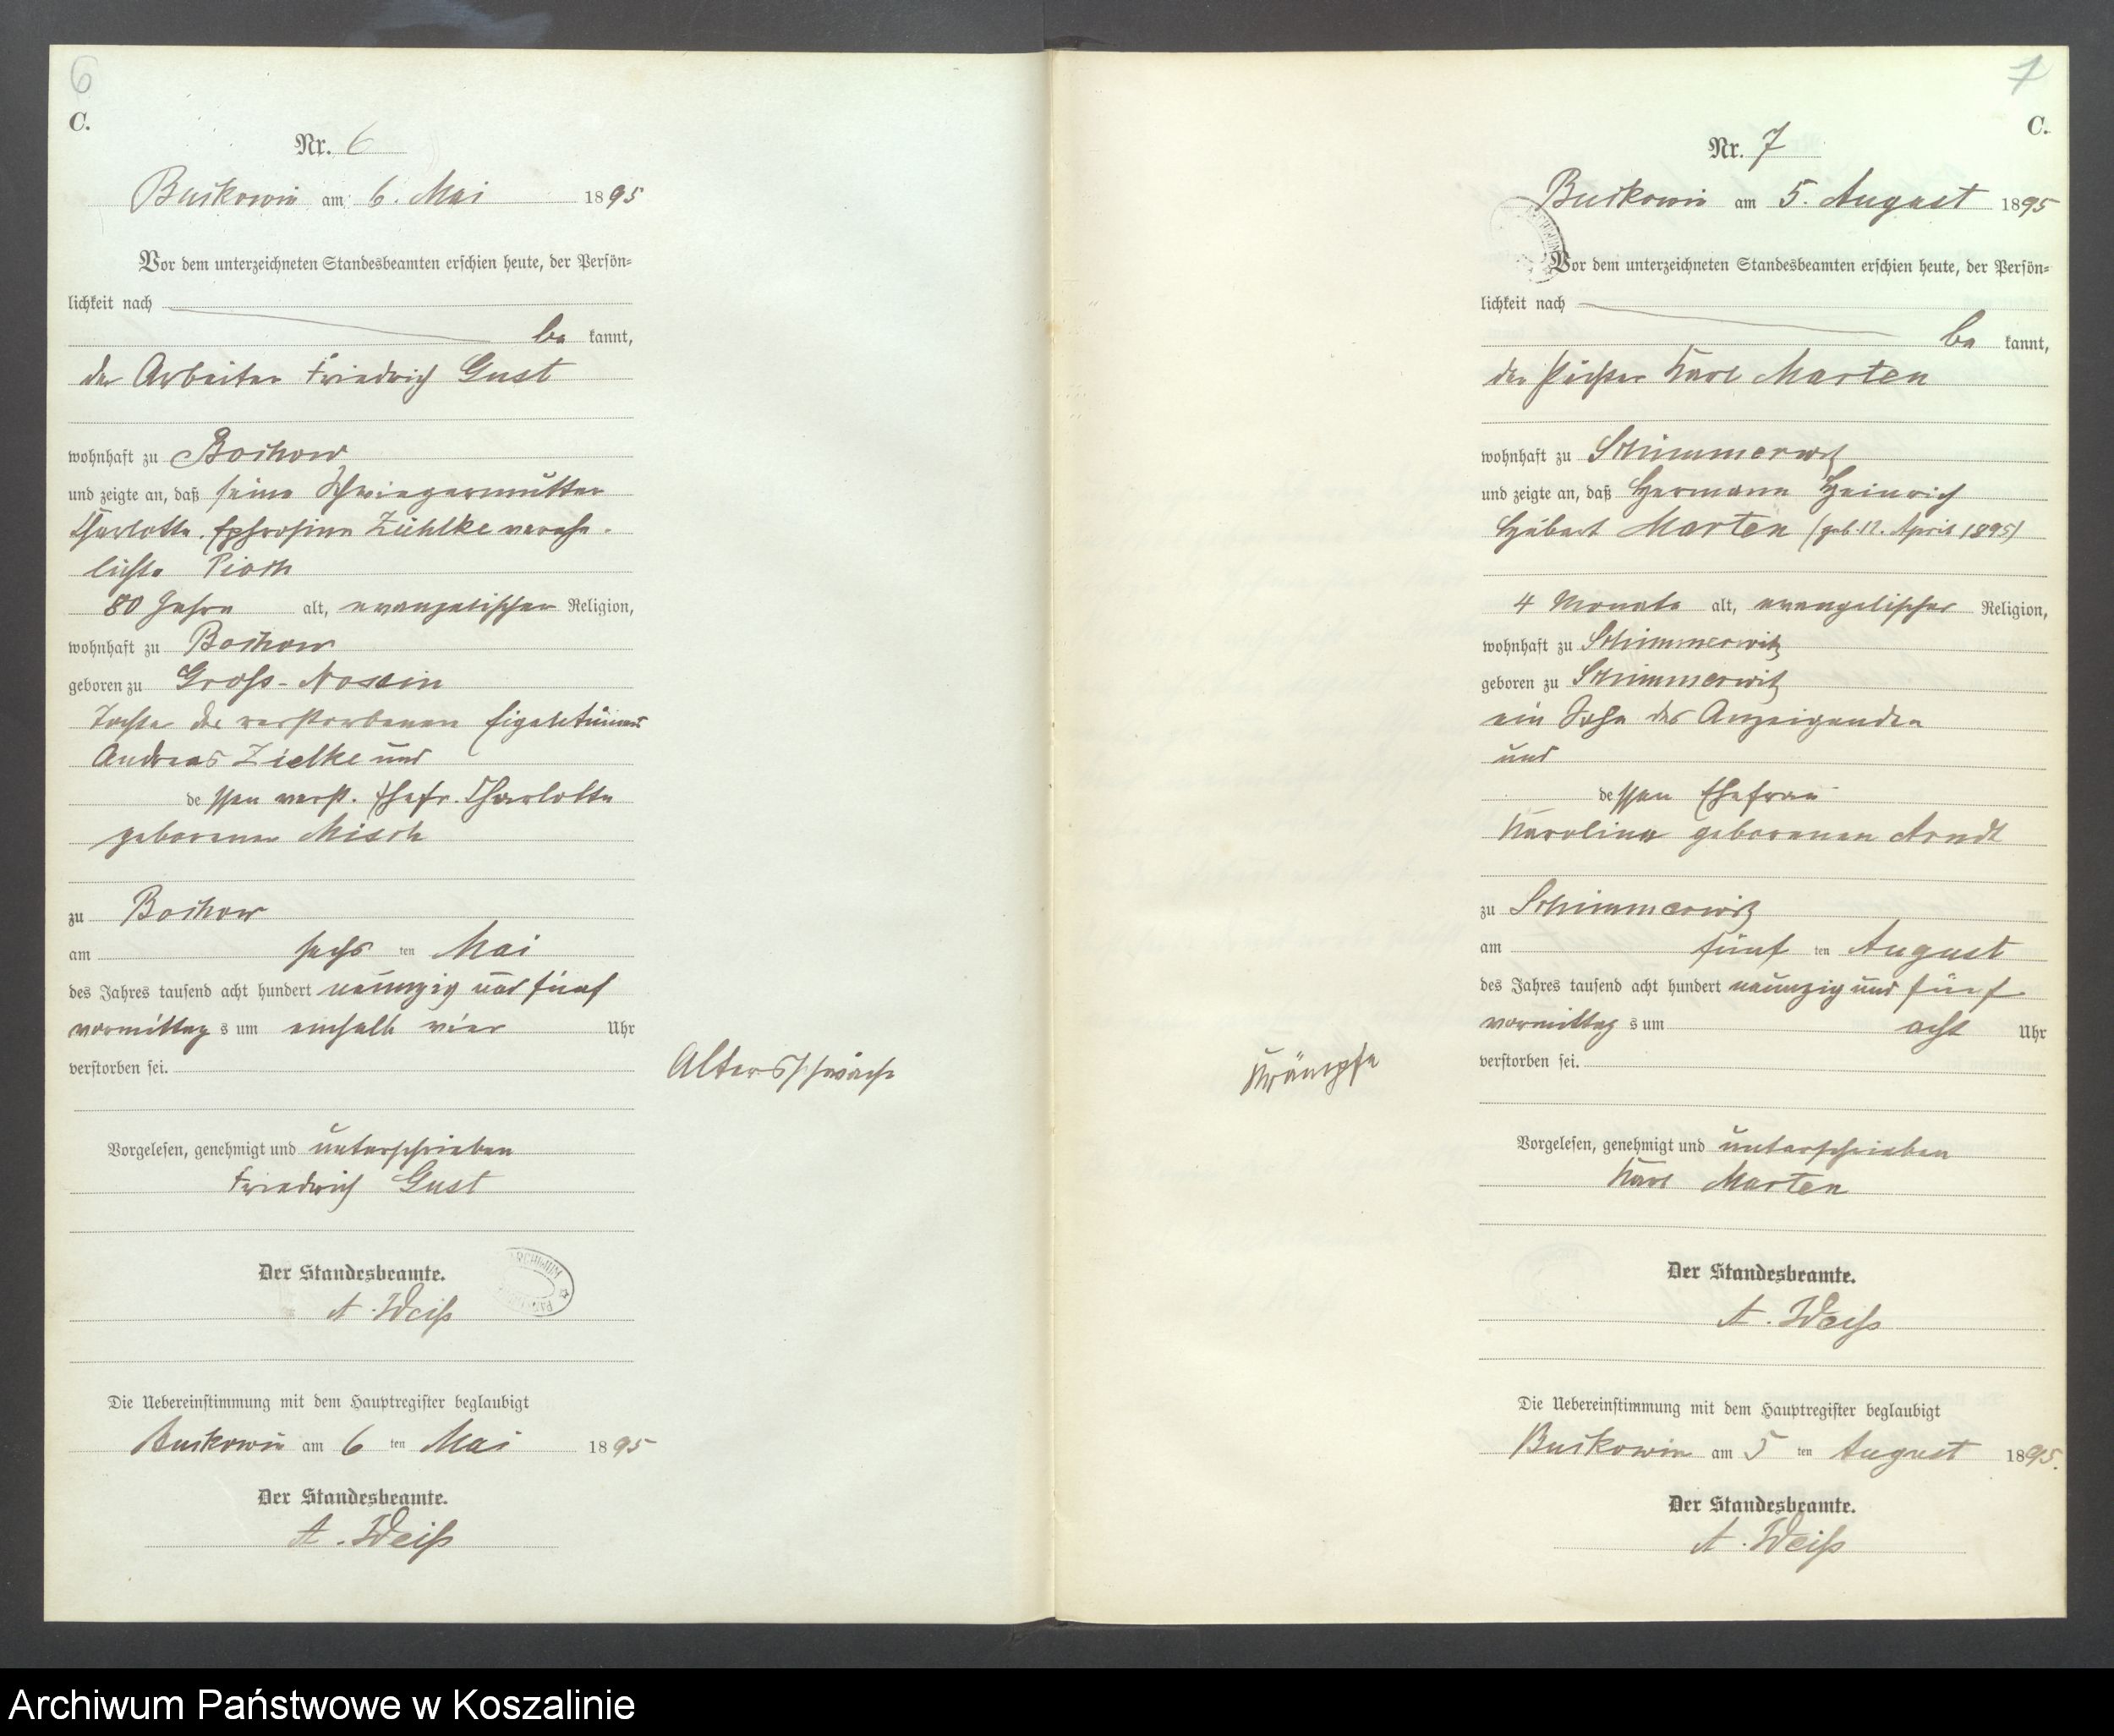 6
C.
Nr. 6
Buckowin am 6. Mai 1895
Vor dem unterzeichneten Standesbeamten erschien heute, der Persön-
lichkeit nach
be kannt,
der Arbeiter Friedrich Gust
wohnhaft zu Bochow
und zeigte an, daß seine Schwiegermutter
Charlotte Ephrosine Zühlke verehe-
lichte Pioch
80 Jahre alt, evangelischer Religion,
wohnhaft zu Bochow
geboren zu Gross-Nossin
Tochter der verstorbenen Eigentümer
Andreas Zielke und
dessen verst. Ehefr. Charlotte
geborenen Misch
zu Bochow
am sechs ten Mai
des Jahres tausend acht hundert neunzig und fünf
vormittag s um einhalb vier Uhr
verstorben sei.
Altersschwäche
Vorgelesen, genehmigt und unterschrieben
Friedrich Gust
Der Standesbeamte.
ARCHIWUM
A. Weiß
Die Uebereinstimmung mit dem Hauptregister beglaubigt
Buckowin am 6 ten Mai 1895
Der Standesbeamte.
A. Weiß
7
C.
Nr. 7
Buckowin am 5. August 1895
Vor dem unterzeichneten Standesbeamten erschien heute, der Persön-
lichkeit nach
be kannt,
der Pächter Karl Marten
wohnhaft zu Schimmerwitz
und zeigte an, daß Hermann Heinrich
Hubert Marten (geb. 12. April 1895)
4 Monate alt, evangelischer Religion,
wohnhaft zu Schimmerwitz
geboren zu Schimmerwitz
ein Sohn des Anzeigenden
und
dessen Ehefrau
Karoline geborenen Arndt
zu Schimmerwitz
am fünf ten August
des Jahres tausend acht hundert neunzig und fünf
vormittag s um acht Uhr
verstorben sei.
Krämpfe
Vorgelesen, genehmigt und unterschrieben
Karl Marten
Der Standesbeamte.
A. Weiß
Die Uebereinstimmung mit dem Hauptregister beglaubigt
Buckowin am 5 ten August 1895.
Der Standesbeamte.
A. Weiß
Archiwum Państwowe w Koszalinie